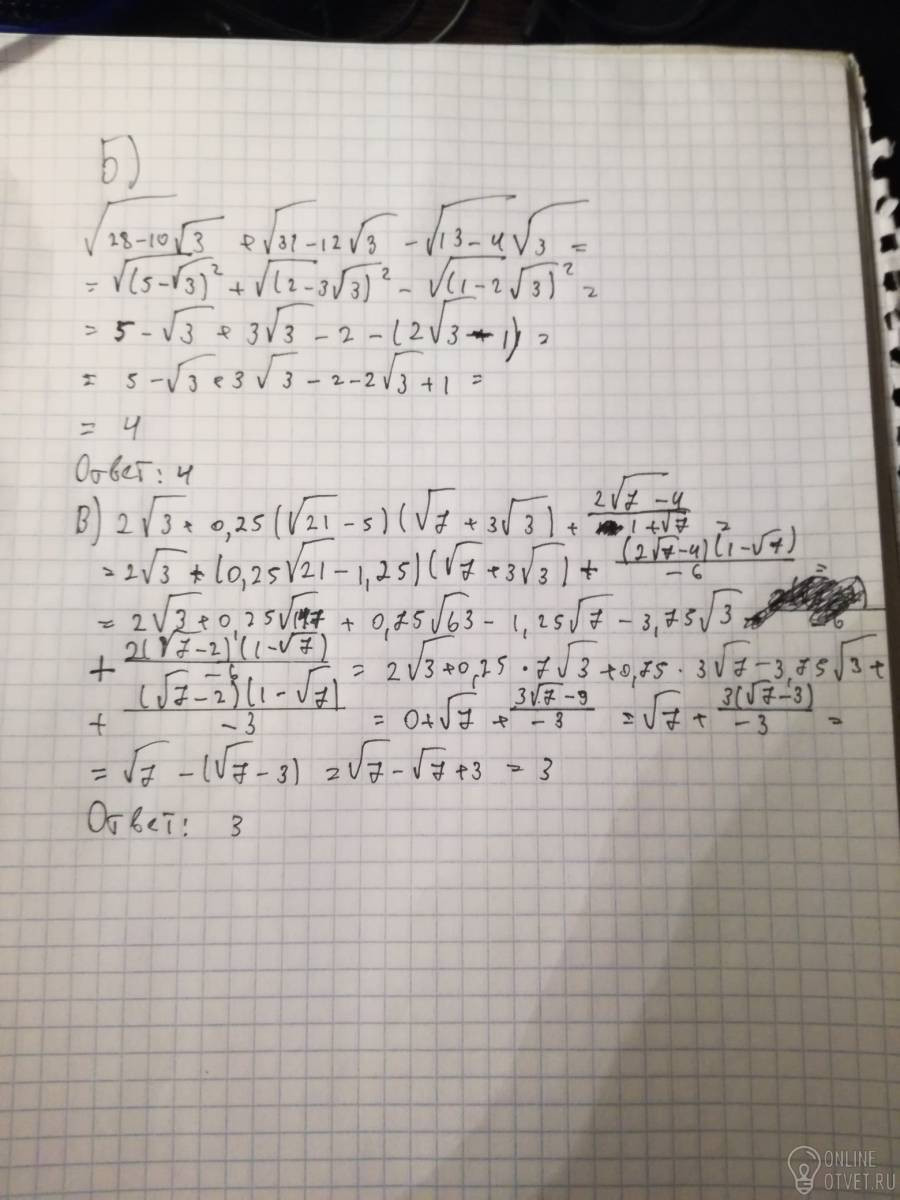 Б)
√(28-10√3) + √(31-12√3) - √(13-4√3) =
= √((5-√3)²) + √((2-3√3)²) - √((1-2√3)²) =
= 5 - √3 + 3√3 - 2 - (2√3 - 1) =
= 5 - √3 + 3√3 - 2 - 2√3 + 1 =
= 4
Ответ: 4
В) 2√3 + 0,25(√21 - 5)(√7 + 3√3) + (2√7 - 4)/(1+√7) =
= 2√3 + (0,25√21 - 1,25)(√7 + 3√3) + ((2√7-4)(1-√7))/(-6) =
= 2√3 + 0,25√147 + 0,75√63 - 1,25√7 - 3,75√3
+ (2(√7-2)(1-√7))/(-6) = 2√3 + 0,25·7√3 + 0,75·3√7 - 3,75√3 +
+ ((√7-2)(1-√7))/(-3) = 0 + √7 + (3√7-9)/(-3) = √7 + (3(√7-3))/(-3) =
= √7 - (√7-3) = √7 - √7 + 3 = 3
Ответ: 3
ONLINE
OTVET.RU